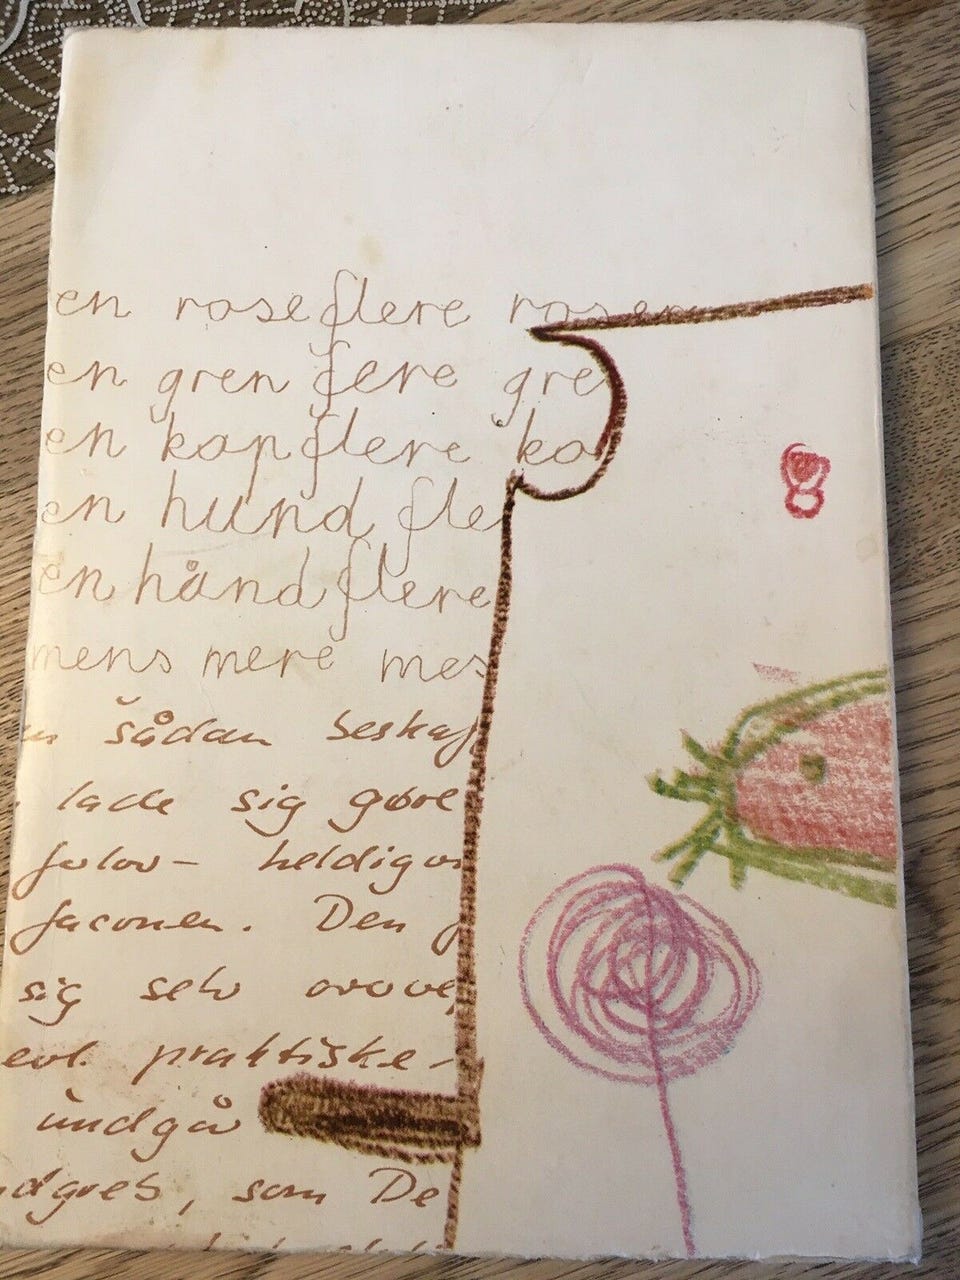 en rose flere rosen
en gren flere gre
en kop flere ko
en hund fle
en hånd flere
mens mere mes
sådan beskaf
lade sig gøre
heldigvi
faconen. Den
sig selv
evt. praktiske
undgå
dgreb, som De